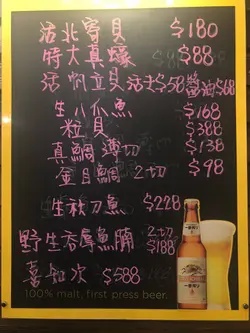 活北寄貝 $180
特大真蠔 $88
活帆立貝 活去$58 醬油$68
生八爪魚 $168
粒貝 $388
真鯛 薄切 $138
金目鯛 2切 $98
生秋刀魚 $228
野生吞拿魚腩 2切 $188
喜知次 $588
100% malt, first press beer.